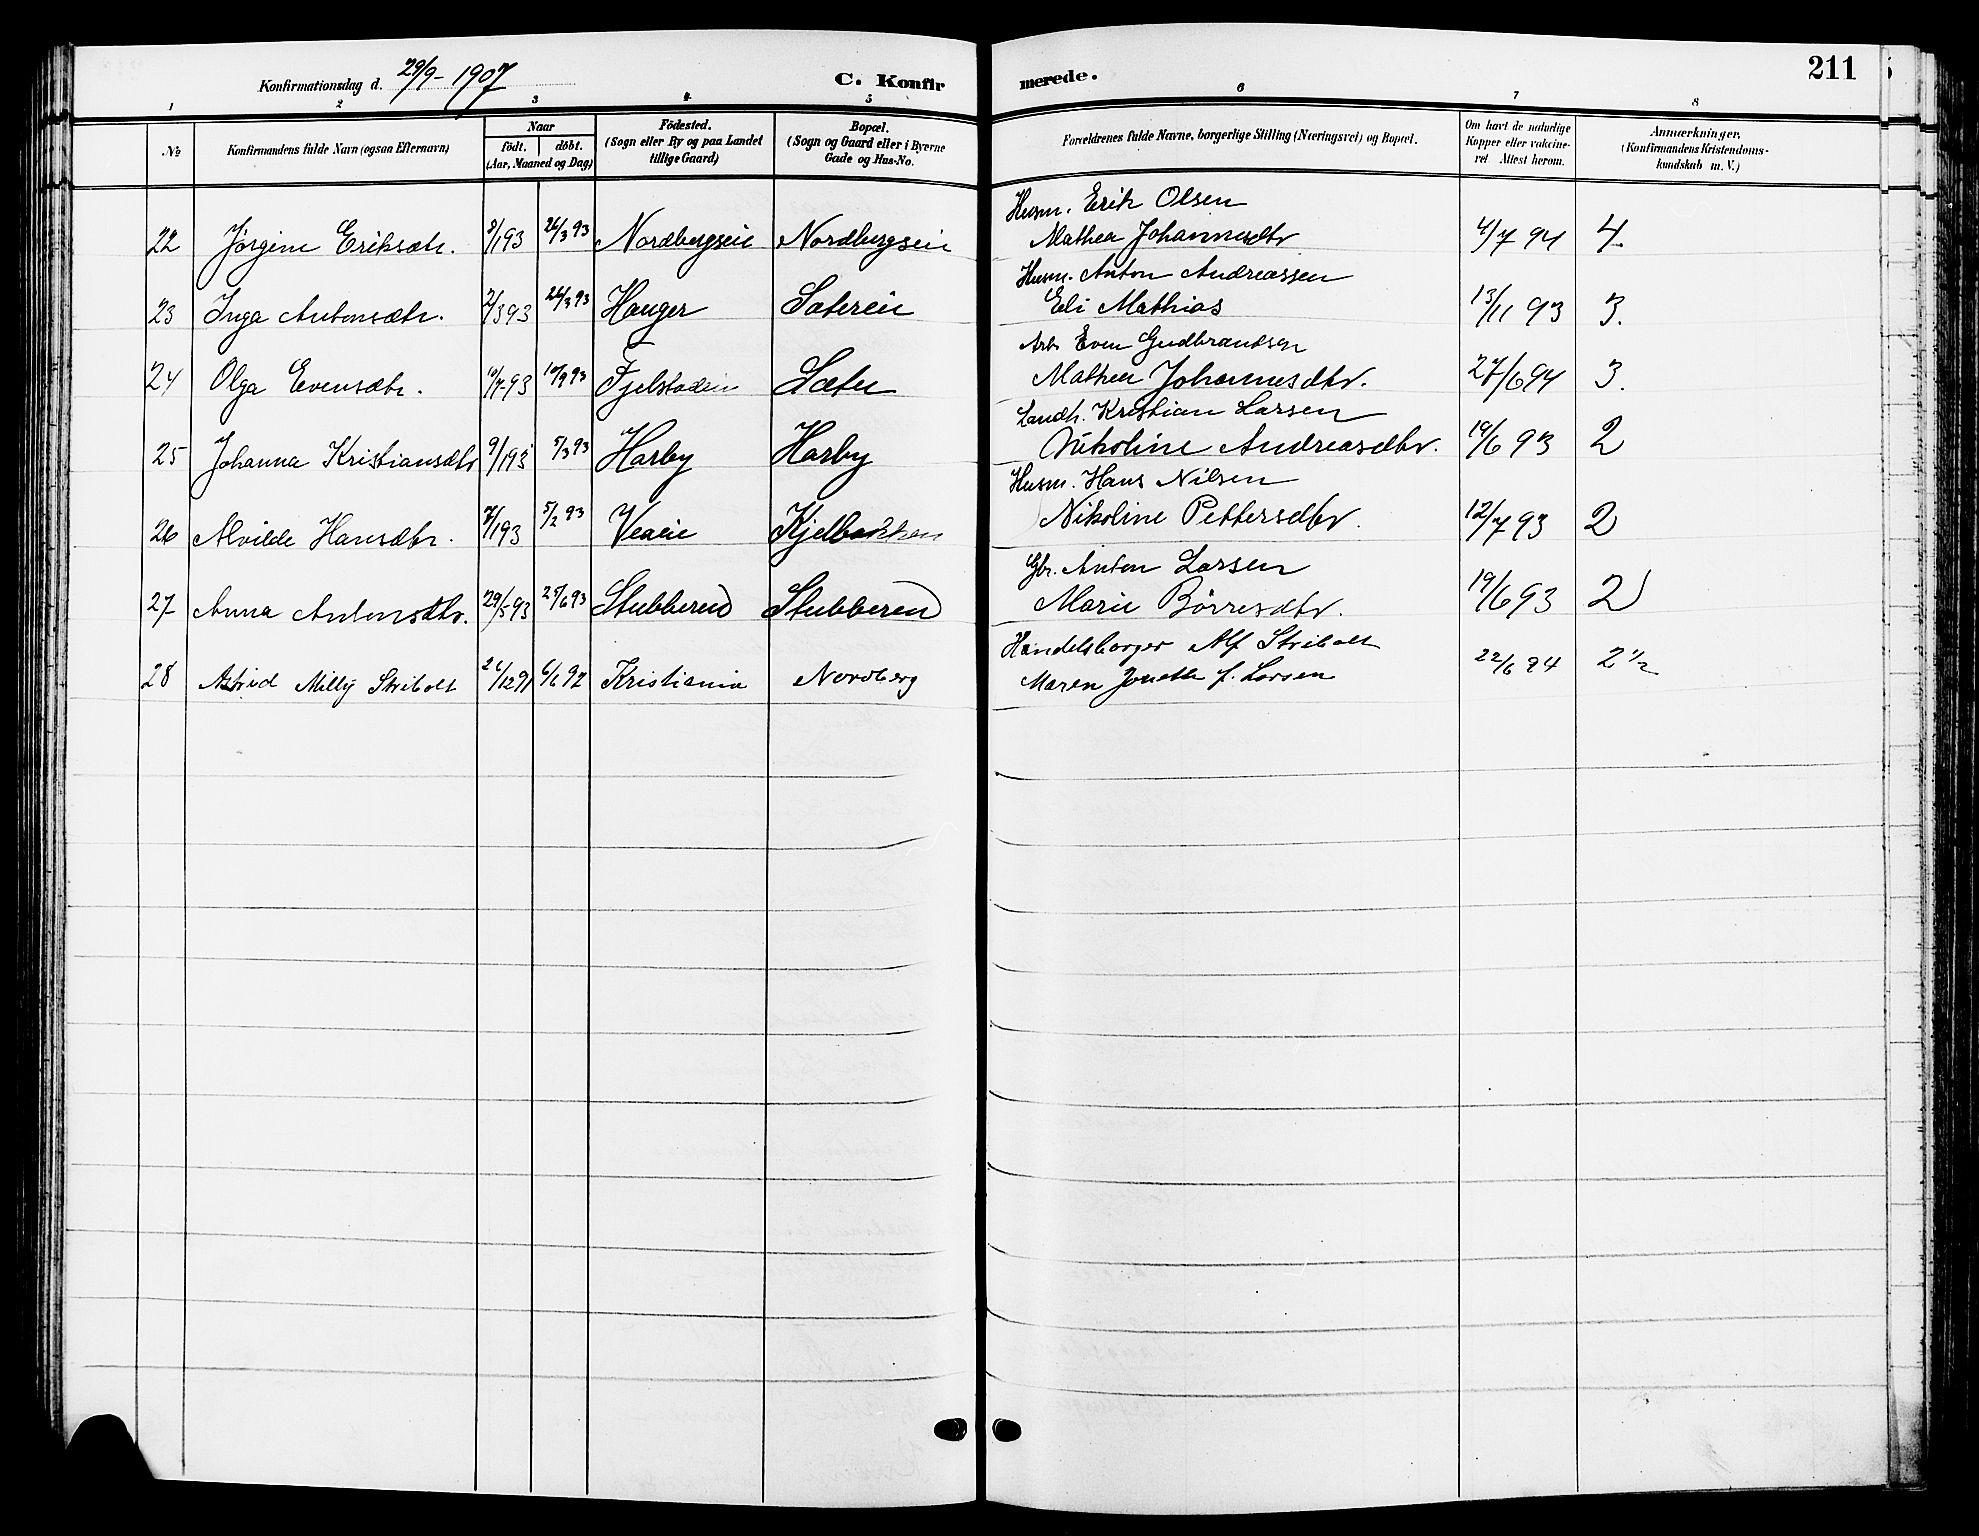 Konfirmationsdag d. 29/9-1907 C. Konfirmerede. 211
1 2 3 4 5 6 7 8
No Konfirmandens fulde Navn (ogsaa Efternavn) Naar født. døbt. (Aar, Maaned og Dag) Födested. (Sogn eller By og paa Landet tillige Gaard) Bopæl. (Sogn og Gaard eller i Byerne Gade og Hus-No. Forældrenes fulde Navne, borgerlige Stilling (Næringsvei) og Bopæl. Om havt de naturlige Kopper eller vakcineret Attest herom. Anmærkninger. (Konfirmandens Kristendomskundskab m. V.)
Husm. Erik Olsen
22 Jørgine Eriksdtr. 8/1 93 26/3 93 Nordbergseie Nordbergseie Mathea Johannesdtr 4/7 94 4.
Husm. Anton Andreassen
23 Inga Antonsdtr. 2/3 93 26/3 93 Hauger Sætereie Eli Mathias 13/11 93 3.
Arb. Even Gudbrandsen
24 Olga Evensdtr. 10/7-93 10/9 93 Fjelstadeie Sæter Mathea Johannesdtr. 27/6 94 3.
Landh. Kristian Larsen
25 Johanna Kristiansdtr 9/1 93 5/3 93 Harby Harby Nikoline Andreasdtr. 19/6 93 2
Husm. Hans Nilsen
26 Alvilde Hansdtr. 7/1 93 5/2 93 Veaeie Kjelbakken Nikoline Pettersdtr. 12/7 93 2
Gbr. Anton Larsen
27 Anna Antonsdtr. 29/5 93 25/6 93 Stubberud Stubberud Marie Børresdtr. 19/6 93 2
Handelsborger Alf Stribolt
28 Astrid Milly Stribolt 26/12 91 6/6 92 Kristiania Nordberg Maren Jonette f. Larsen 22/6 94 2 1/2